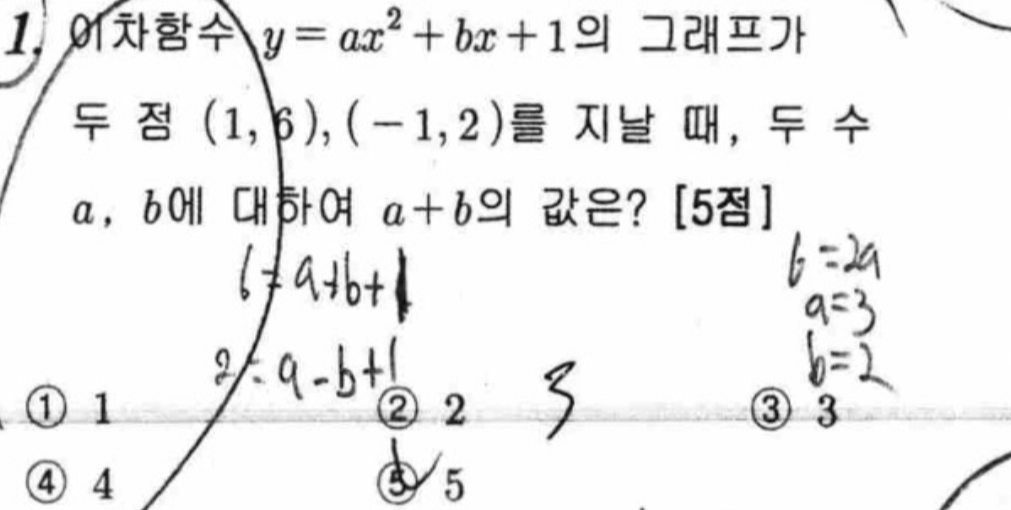 1. 이차함수 y = ax² + bx + 1의 그래프가
두 점 (1, 6), (-1, 2)를 지날 때, 두 수
a, b에 대하여 a+b의 값은? [5점]
6 = a+b+1
2 = a-b+1
6=2a
a=3
b=2
3
① 1 ② 2 ③ 3
④ 4 ⑤ 5